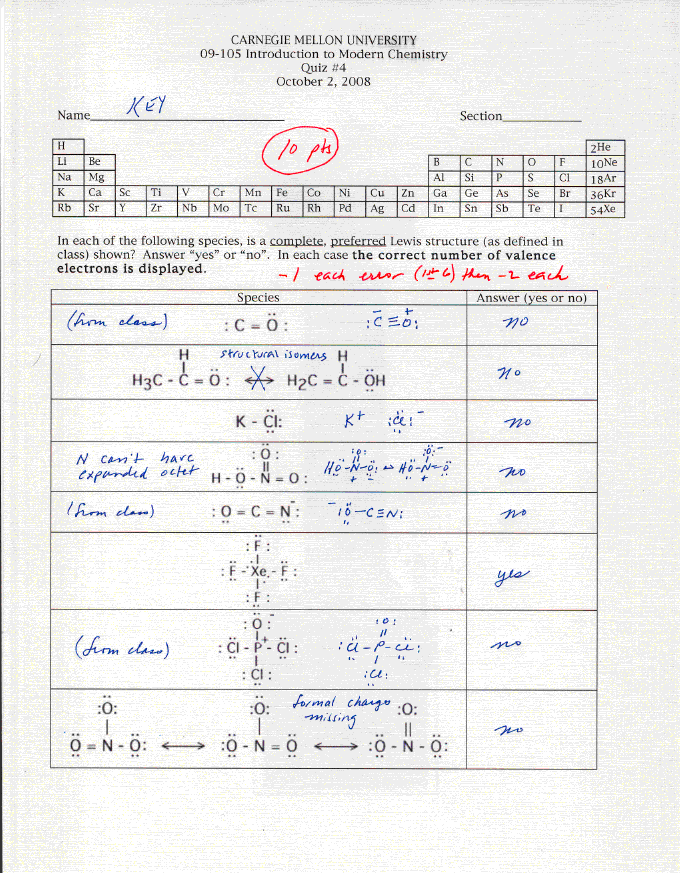 CARNEGIE MELLON UNIVERSITY
09-105 Introduction to Modern Chemistry
Quiz #4
October 2, 2008
Name KEY Section
10 pts
H 2He
Li Be B C N O F 10Ne
Na Mg Al Si P S Cl 18Ar
K Ca Sc Ti V Cr Mn Fe Co Ni Cu Zn Ga Ge As Se Br 36Kr
Rb Sr Y Zr Nb Mo Tc Ru Rh Pd Ag Cd In Sn Sb Te I 54Xe
In each of the following species, is a complete, preferred Lewis structure (as defined in
class) shown? Answer "yes" or "no". In each case the correct number of valence
electrons is displayed.
-1 each error (1st 6) then -2 each
Species Answer (yes or no)
(from class) :C = O: :C≡O: no
structural isomers
H H
H3C - C = O: ↔ H2C = C - OH No
K - Cl: K+ :Cl:- no
N can't have
expanded octet
:O: :O: :O:-
H - O - N = O: HO-N-O: ↔ HO-N=O no
(from class) :O = C = N:- -:O-C≡N: no
:F:
:F - Xe - F: yes
:F:
:O:- :O:
(from class) :Cl - P+ - Cl: :Cl-P-Cl: no
:Cl: :Cl:
formal charge
missing
:O: :O: :O:
O = N - O: ↔ :O - N = O ↔ :O - N - O: no